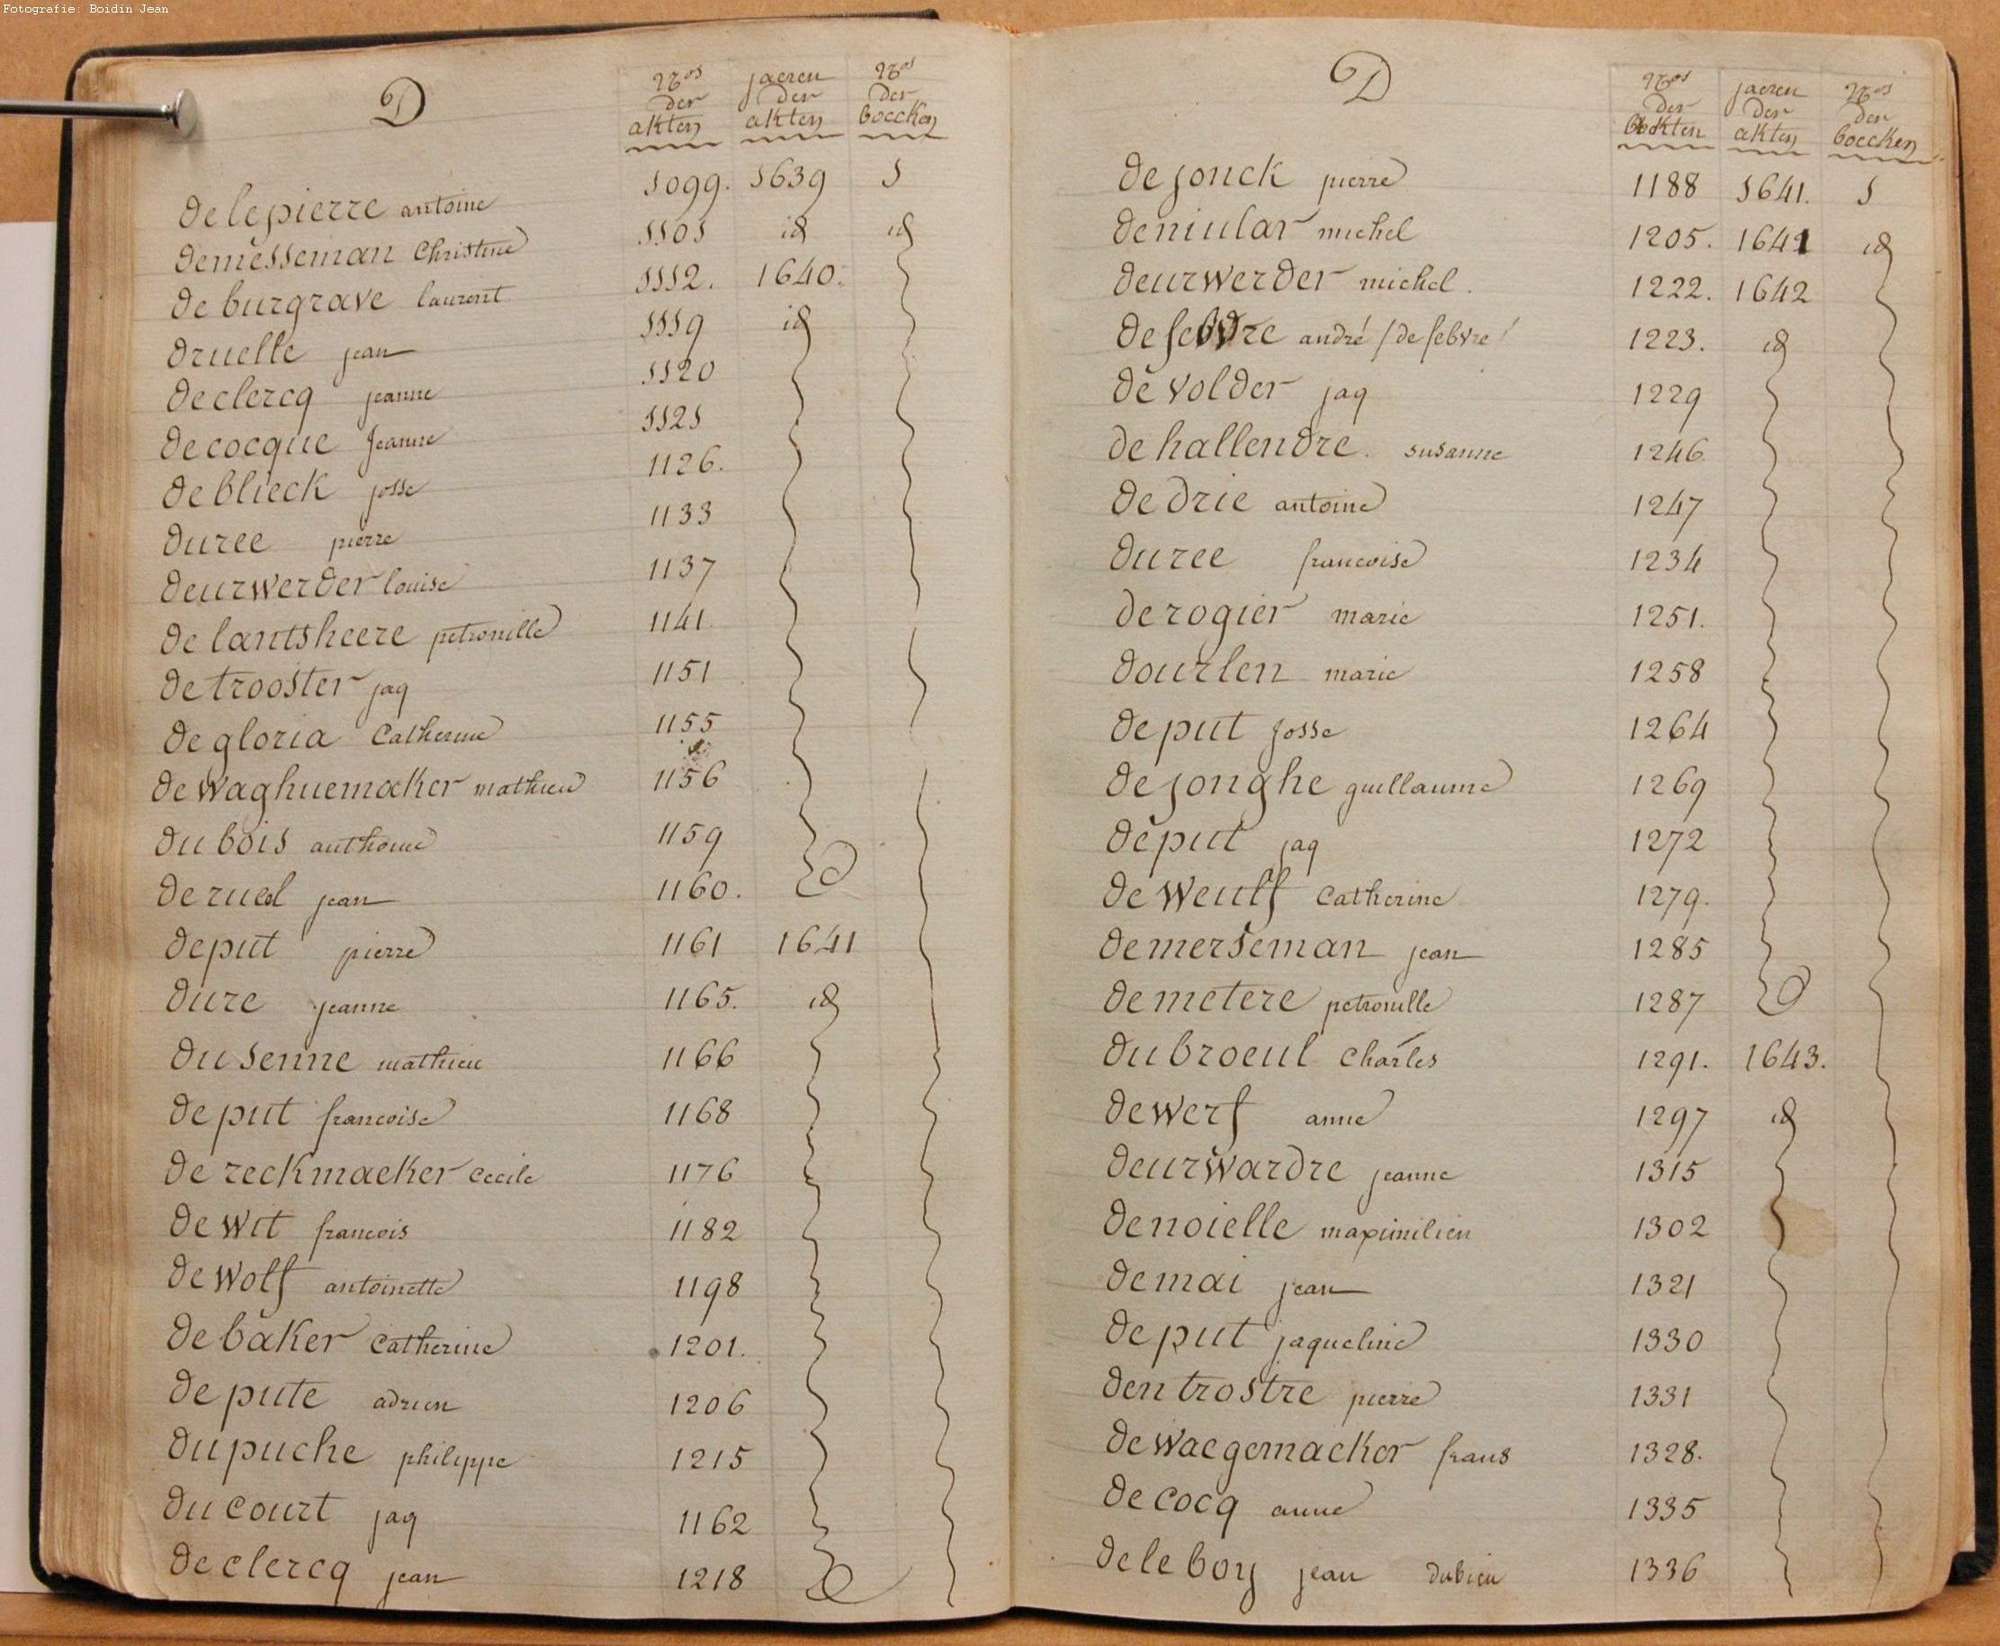 Fotografie: Boidin Jean
D
Nos der akten jaeren der akten Nos der boecken
delepierre antoine 1099. 1639 1
demesseman Christine 1101 id id
de burgrave laurent 1112. 1640.
druelle jean 1119 id
declercq jeanne 1120
decocque Jeanne 1121
de blieck josse 1126.
duree pierre 1133
deurwerder louise 1137
de lantsheere petronille 1141
de trooster jaq 1151
de gloria Catherine 1155
de waghuemaker mathieu 1156
du bois anthoine 1159
de rued jean 1160.
deput pierre 1161 1641
dure jeanne 1165. id
du senne mathieu 1166
de put francoise 1168
de reckmaeker Cecile 1176
de wit francois 1182
de wolf antoinette 1198
de baker Catherine 1201.
de pute adrien 1206
dupuche philippe 1215
du court jaq 1162
de clercq jean 1218
D
Nos der akten jaeren der akten Nos der boecken
de jonck pierre 1188 1641. 1
deniular michel 1205. 1641 id
deurwerder michel. 1222. 1642
de febvre andré /de febvre/ 1223. id
de volder jaq 1229
de hallendre. susanne 1246
de drie antoine 1247
duree francoise 1234
de rogier marie 1251.
dourlen marie 1258
de put Josse 1264
de jonghe guillaume 1269
de put jaq 1272
de weulf Catherine 1279.
demerseman jean 1285
demetere petronille 1287
dubroeul Charles 1291. 1643.
dewerf anne 1297 id
deurwardre jeanne 1315
denoielle maximilien 1302
demai jean 1321
de put jaqueline 1330
den trostre pierre 1331
de waegemacker frans 1328.
de cocq anne 1335
dele boy jean dubieu 1336